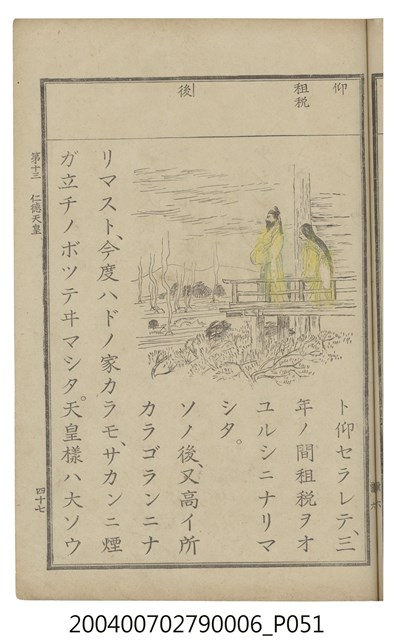 仰
租税
後
ト仰セラレテ、三
年ノ間租税ヲオ
ユルシニナリマ
シタ。
ソノ後、又高イ所
カラゴランニナ
リマスト、今度ハドノ家カラモ、サカンニ煙
ガ立チノボツテヰマシタ。天皇樣ハ大ソウ
第十三 仁德天皇
四十七
200400702790006_P051